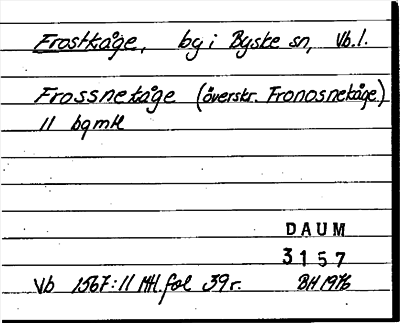 Frostkåge, by i Byske sn, Vb.l.
Frossnekåge (överskr. Fronosnekåge)
11 bgmkl
DAUM
3157
Vb 1567:11 Mtl. fol 39r. BH 1976